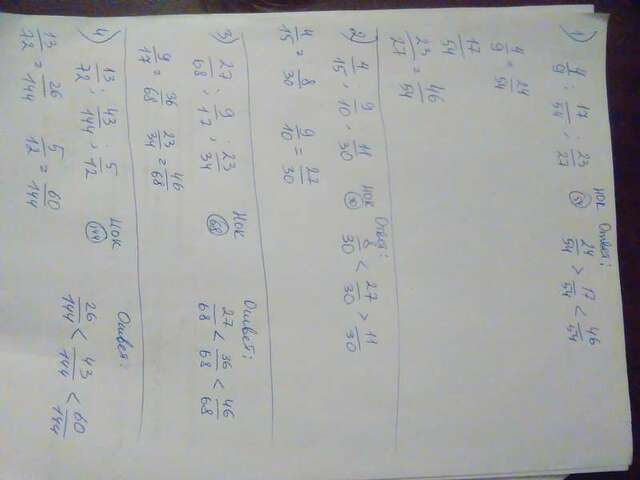 1) 4/9 ; 17/54 ; 23/27 НОК (54) Ответ: 24/54 > 17/54 < 46/54
4/9 = 24/54
17/54
23/27 = 46/54
2) 4/15 , 9/10 , 11/30 НОК (30) Ответ: 8/30 < 27/30 > 11/30
4/15 = 8/30 9/10 = 27/30
3) 27/68 ; 9/17 ; 23/34 НОК (68) Ответ: 27/68 < 36/68 < 46/68
9/17 = 36/68 23/34 = 46/68
4) 13/72 ; 43/144 , 5/12 НОК (144) Ответ: 26/144 < 43/144 < 60/144
13/72 = 26/144 5/12 = 60/144